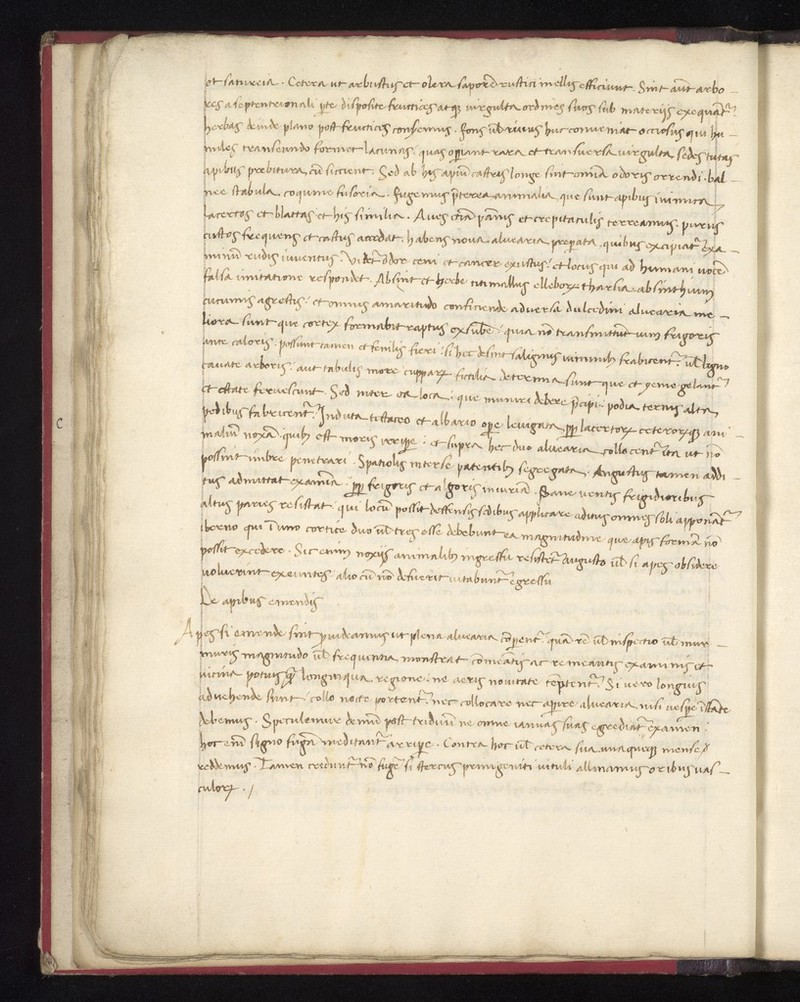 et satureia . Cetera ut arbustus et olera saporẽ rustici mellis efficiunt . Sint aũt arbo –
res a septentrionali ꝑte disposite fructices atqꝫ virgulta ordines suos sub materijs exequãt᷑ .
herbas deinde plano post frutices conseremus . fons ul̃ rivus huc conveniat occiosus qui hu –
miles transeundo formet lacunas . quas operiant rara et transversa virgulta sedes tutas
apibus prebitura cũ siccient . Sed ab his apiũ castris longe sint omĩa odoris orrendi . bal –
nee stabula coquine fusoria . fugemus p̃terea animalia que sunt apibus inimica
lacertos et blattas et his similia . Aves etiã pãnis et crepitaculis terreamus . purus
custos frequens et castus accedat . habens nova alvearia preparata quibus excipiat᷑ exa –
minũ rudis iuventus . Vitet᷑ odor ceni et cancer exustus . et locus qui ad humanã vocẽ
falsa imitatione respondet . Absint et herbe titimallus elleborꝝ tharsia absinthium
cucumis agrestis . et omnis amaritudo conficiende adversa dulcedini alvearia me –
liora sunt que cortex formabit raptus ex subere . quia nõ transmittunt vim frigoris
ante caloris . possunt tamen et ferulis fieri . si hec desint salignis viminibꝫ frabicent᷑ . ul̃ ligno
cavate arboris . aut tabulis more cupparꝝ fictilia deterrima sunt que et yeme gelant᷑
et estate fervescunt . Sed inter ea loca . que muniri debere p̃cipi . podia ternis alta
pedibus fabricent᷑ Induta testaceo et albario ope levigata ꝓp̃ lacertorꝝ ceterorꝙ ani –
maliũ noxã . quibꝫ est moris irripere . et supra hec duo alvearia collocent᷑ ita ut nõ
possint imbre penetrari . Spatiolis interse patentibꝫ segregata . Angustus tamen addi –
tus admittat examina . ꝓp̃ frigoris et algoris iniuriã . Sane ventis frigidioribus
altus paries resistat . qui locũ possit deffensis sedibus applicare aditus omnes soli apponãt᷑
iberno qui ĩ uno cortice duo ul̃ tres esse debebunt ea magnitudine . que apis formã nõ
possit excedere . Sic enim noxijs animalibꝫ ingressu resistet᷑ Augusto ul̃ si apes obsidere
voluerint exeuntes . alio cũ nõ defuerit utabunt᷑ egressu
De apibus emendis
Apes si emende sint p̃videamus ut plena alvearia cõꝑent᷑ . quã rẽ ul̃ inspectio ul̃ mur –
muris magnitudo ul̃ frequentia monstrat cõmeãtis ac remeantis examinis et
vicina potius qꝫ longinqua regione . ne aeris novitate tẽptent᷑ . Si vero longius
advehende sunt . collo nocte portent᷑ . nec collocare nec aperire alvearia nisi vespe ĩstãte
debemus . Speculemur deinde post triduum ne omne ianuas suas egrediat᷑ examen .
hoc enĩ signo fugã meditant᷑ arripe . Contra hoc ul̃ cetera sua unaqueqꝫ mense
reddemus . Tamen credunt᷑ nõ fuge si stercus primigeniti vituli allinamus oribus vas –
culorꝝ . /
C